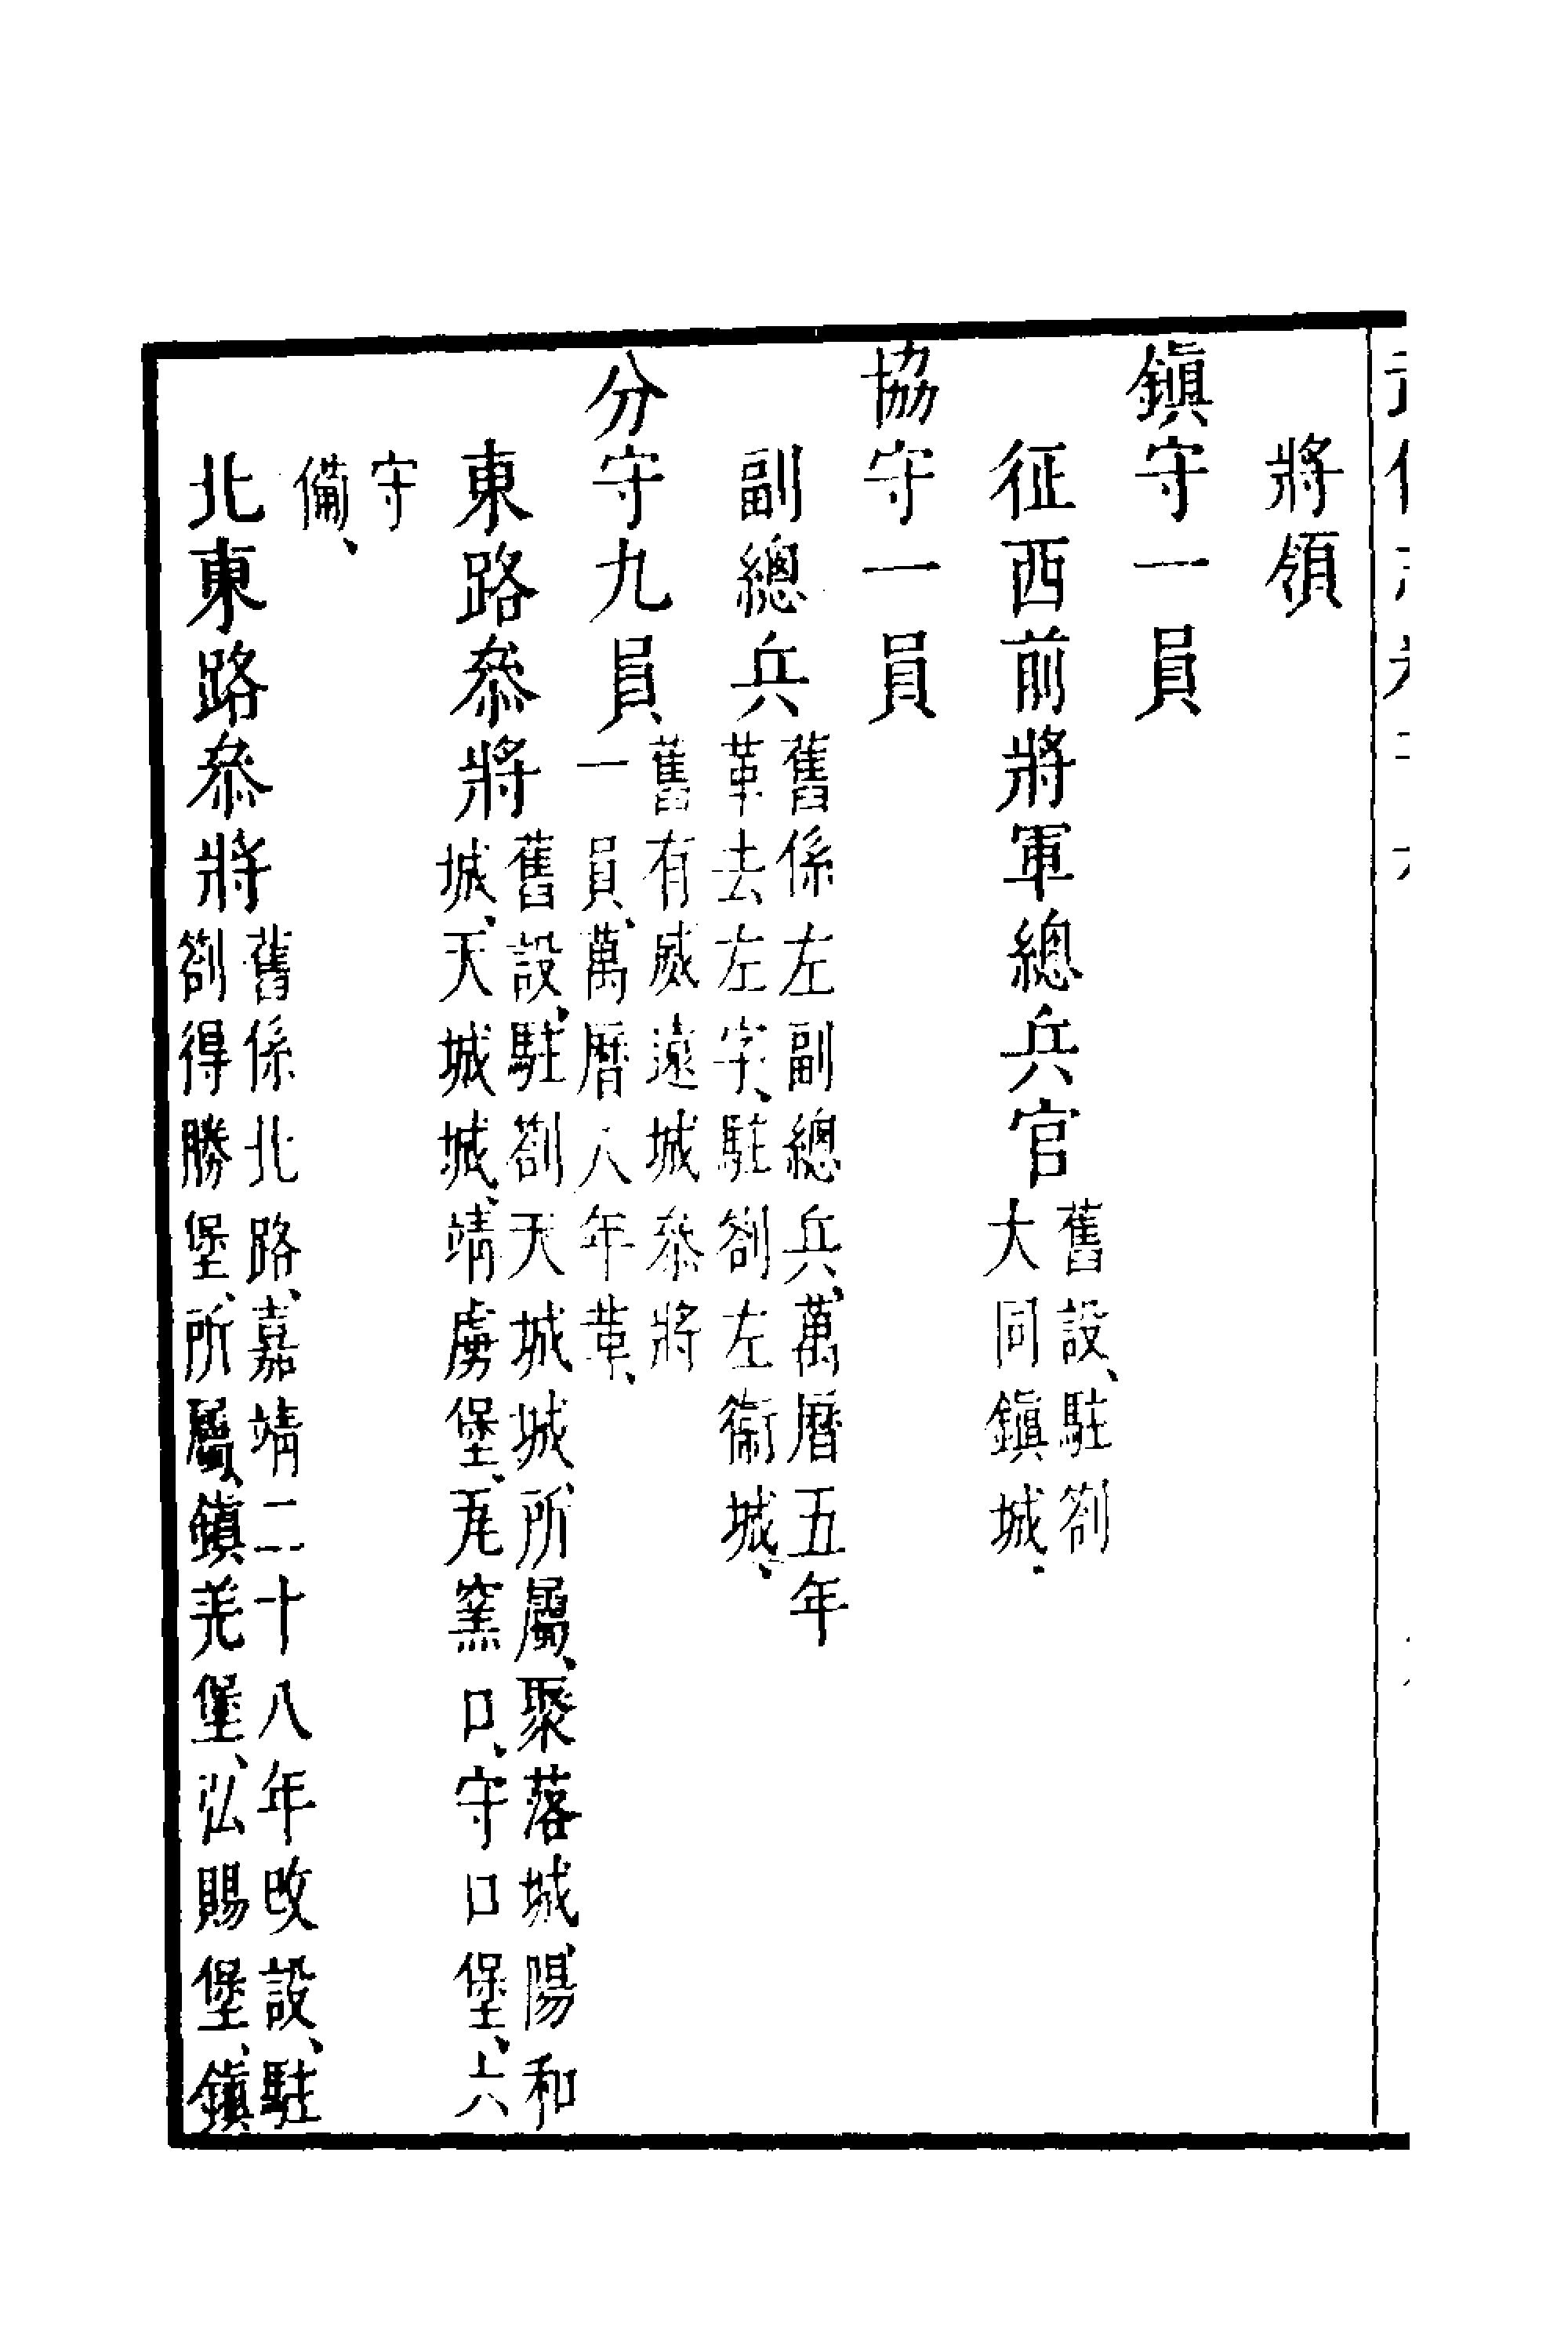 將領
鎮守一員
征西前將軍總兵官
舊設、駐劄
大同鎮城、
協守一員
副總兵
舊係左副總兵、萬曆五年
革去左字、駐劄左衞城、
分守九員
舊有威遠城叅將
一員、萬曆八年革、
東路叅將
舊設、駐劄天城城所屬、聚落城、陽和
城、天城城、靖虜堡、瓦窯口、守口堡、六
守
備、
北東路叅將
舊係北路、嘉靖二十八年改設、駐
劄得勝堡、所屬、鎮羌堡、弘賜堡、鎮